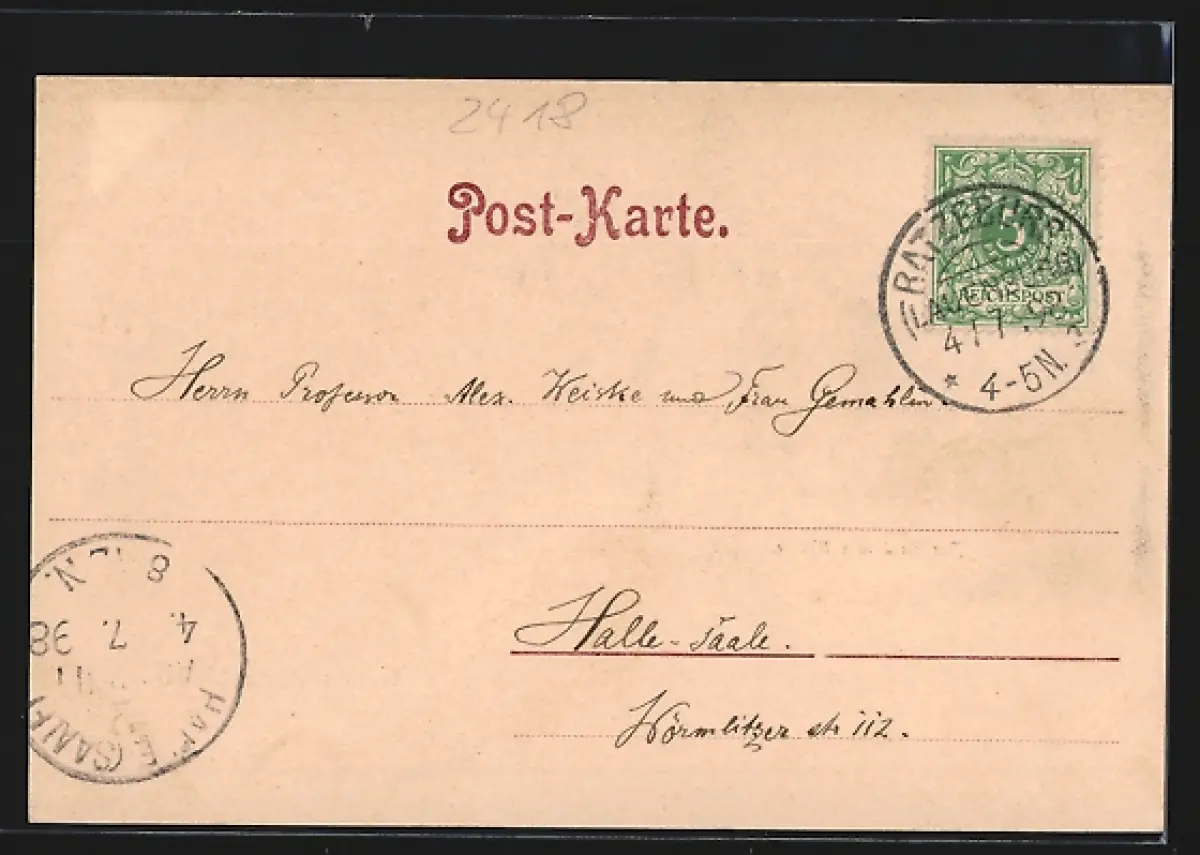 2418
Post-Karte.
5
REICHSPOST
RATZEBURG
(LAUENBURG)
4/7.98
* 4-5N.
Herrn Professor Alex. Weiske und Frau Gemahlin.
Halle-Saale.
Wörmlitzer str 112.
8 V.
4. 7. 98
HALLE (SAALE)